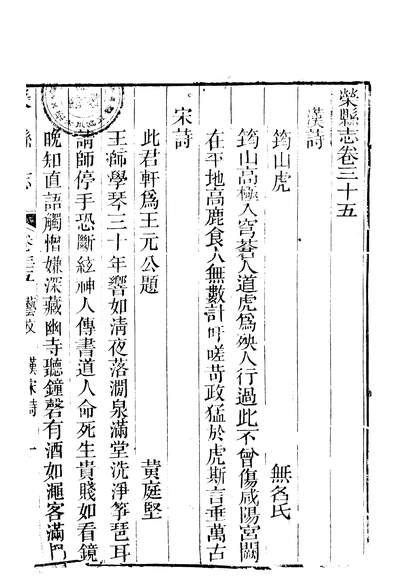 榮縣志卷三十五
漢詩
筠山虎 無名氏
筠山高極入穹蒼人道虎為殃人行過此不曾傷咸陽宮闕
在平地高鹿食人無數計吁嗟苛政猛於虎斯言垂萬古
宋詩
此君軒為王元公題 黃庭堅
王師學琴三十年響如清夜落澗泉滿堂洗淨箏琶耳
請師停手恐斷絃神人傳書道人命死生貴賤如看鏡
晚知直語觸憎嫌深藏幽寺聽鐘磬有酒如澠客滿門
縣志 卷三十五 藝文 漢宋詩 一